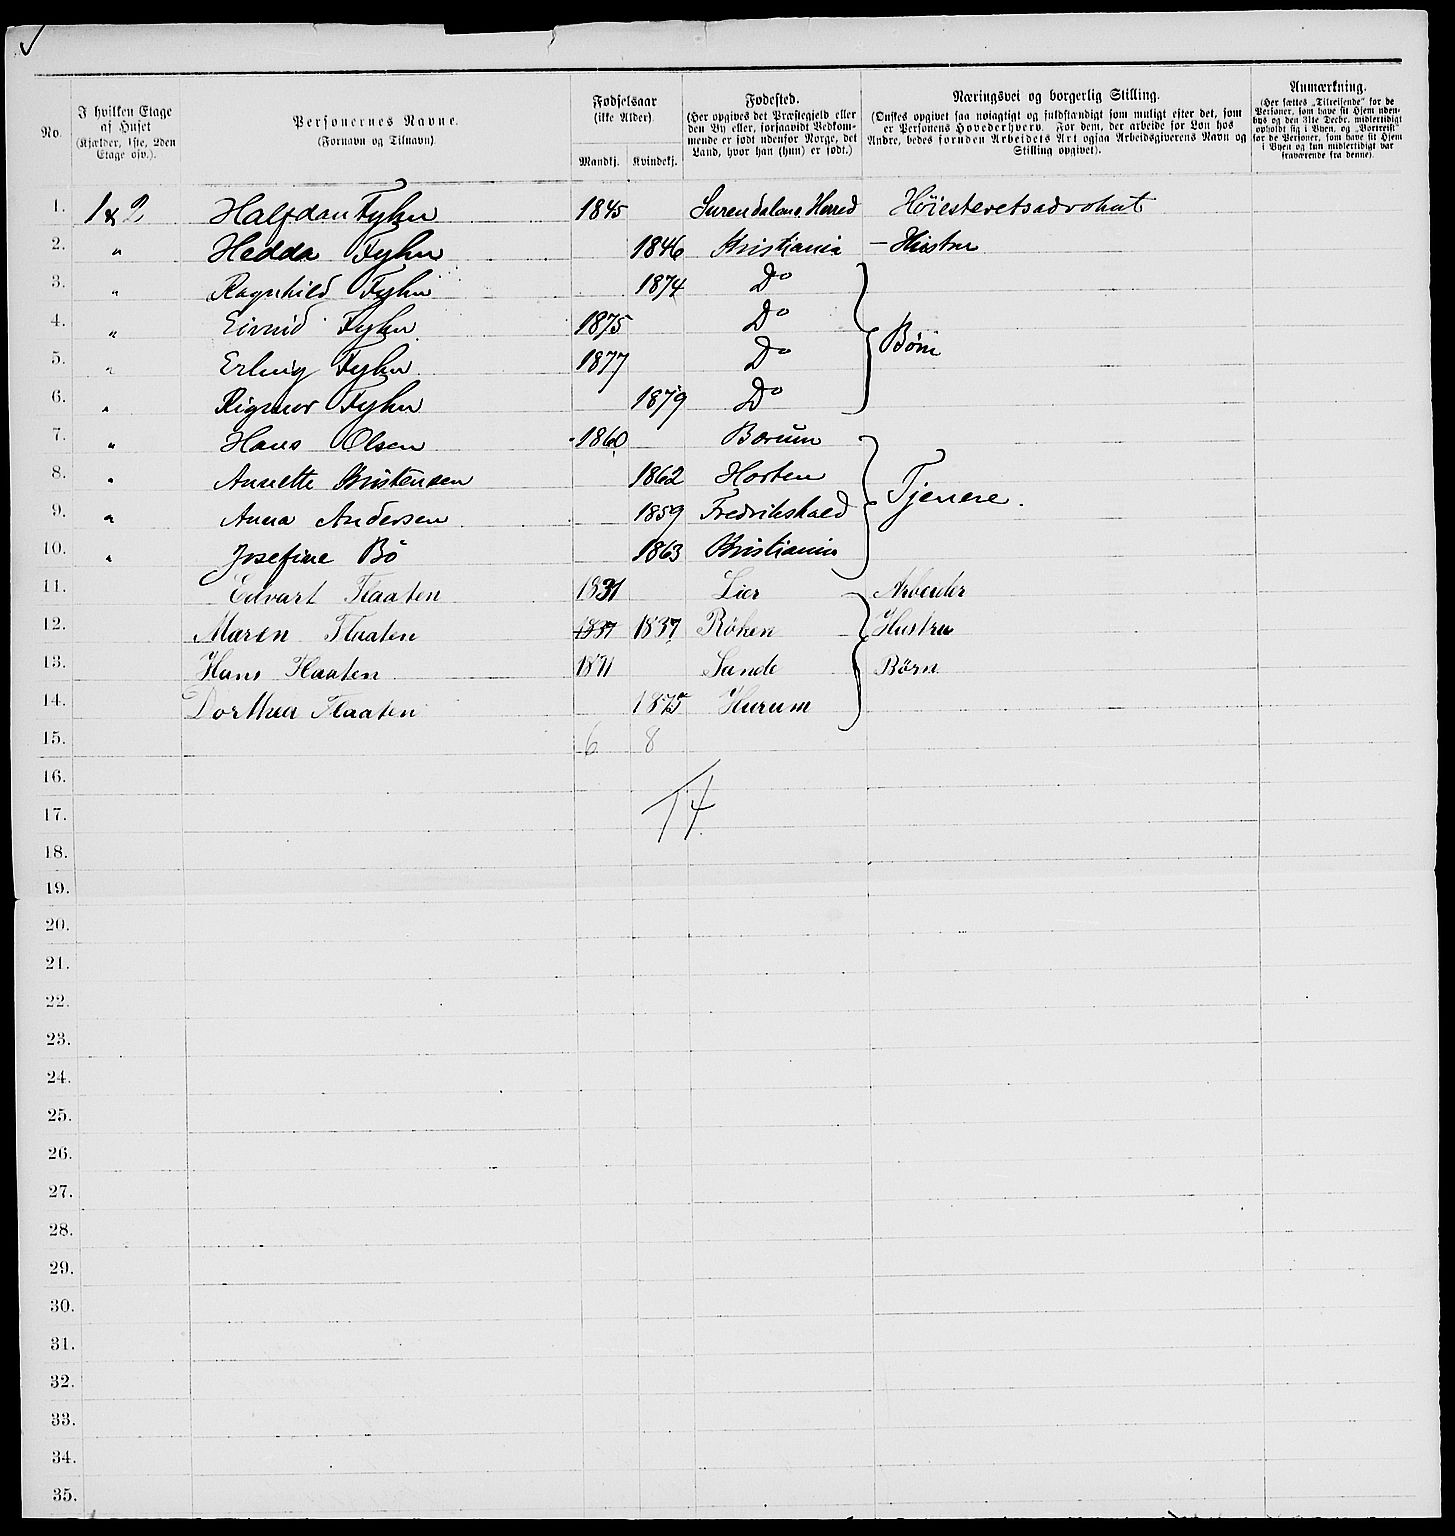 No.
I hvilken Etage af Huset (Kjælder, 1ste, 2den Etage osv.).
Personernes Navne. (Fornavn og Tilnavn)
Fødselsaar (ikke Alder).
Mandkj. Kvindekj.
Fødested. (Her opgives det Præstegjeld eller den By eller, forsaavidt Vedkommende er født udenfor Norge, det Land, hvor han (hun) er født.)
Næringsvei og borgerlig Stilling. (Ønskes opgivet saa nøiagtigt og fuldstændigt som muligt efter det, som er Personens Hovederhverv. For dem, der arbeide for Løn hos Andre, bedes foruden Arbeidets Art ogsaa Arbeidsgiverens Navn og Stilling opgivet).
Anmærkning. (Her sættes „Tilreisende" for de Personer, som have sit Hjem udenbys og den 31te Decbr. midlertidigt opholdt sig i Byen, og „Bortreist" for de Personer, som have sit Hjem i Byen og kun midlertidigt var fraværende fra denne).
1. 1 & 2 Halfdan Fyhn 1845 Surendalens Herred Høiesteretsadvokat
2. " Hedda Fyhn 1846 Kristiania – Hustru
3. " Ragnhild Fyhn 1874 Do
4. " Eivind Fyhn 1875 Do
5. " Erling Fyhn 1877 Do Børn
6. " Rigmor Fyhn 1879 Do
7. " Hans Olsen 1860 Bærum
8. " Annette Kristensen 1862 Horten
9. " Anna Andersen 1859 Fredrikshald Tjenere.
10. " Josefine Bö 1863 Kristiania
11. Edvart Flaaten 1831 Lier Arbeider
12. Maren Flaaten 1837 1837 Röken Hustru
13. Hans Flaaten 1871 Sande Børn
14. Dorthea Flaaten 1875 Hurum
15. 6 8
16.
17. 14
18.
19.
20.
21.
22.
23.
24.
25.
26.
27.
28.
29.
30.
31.
32.
33.
34.
35.